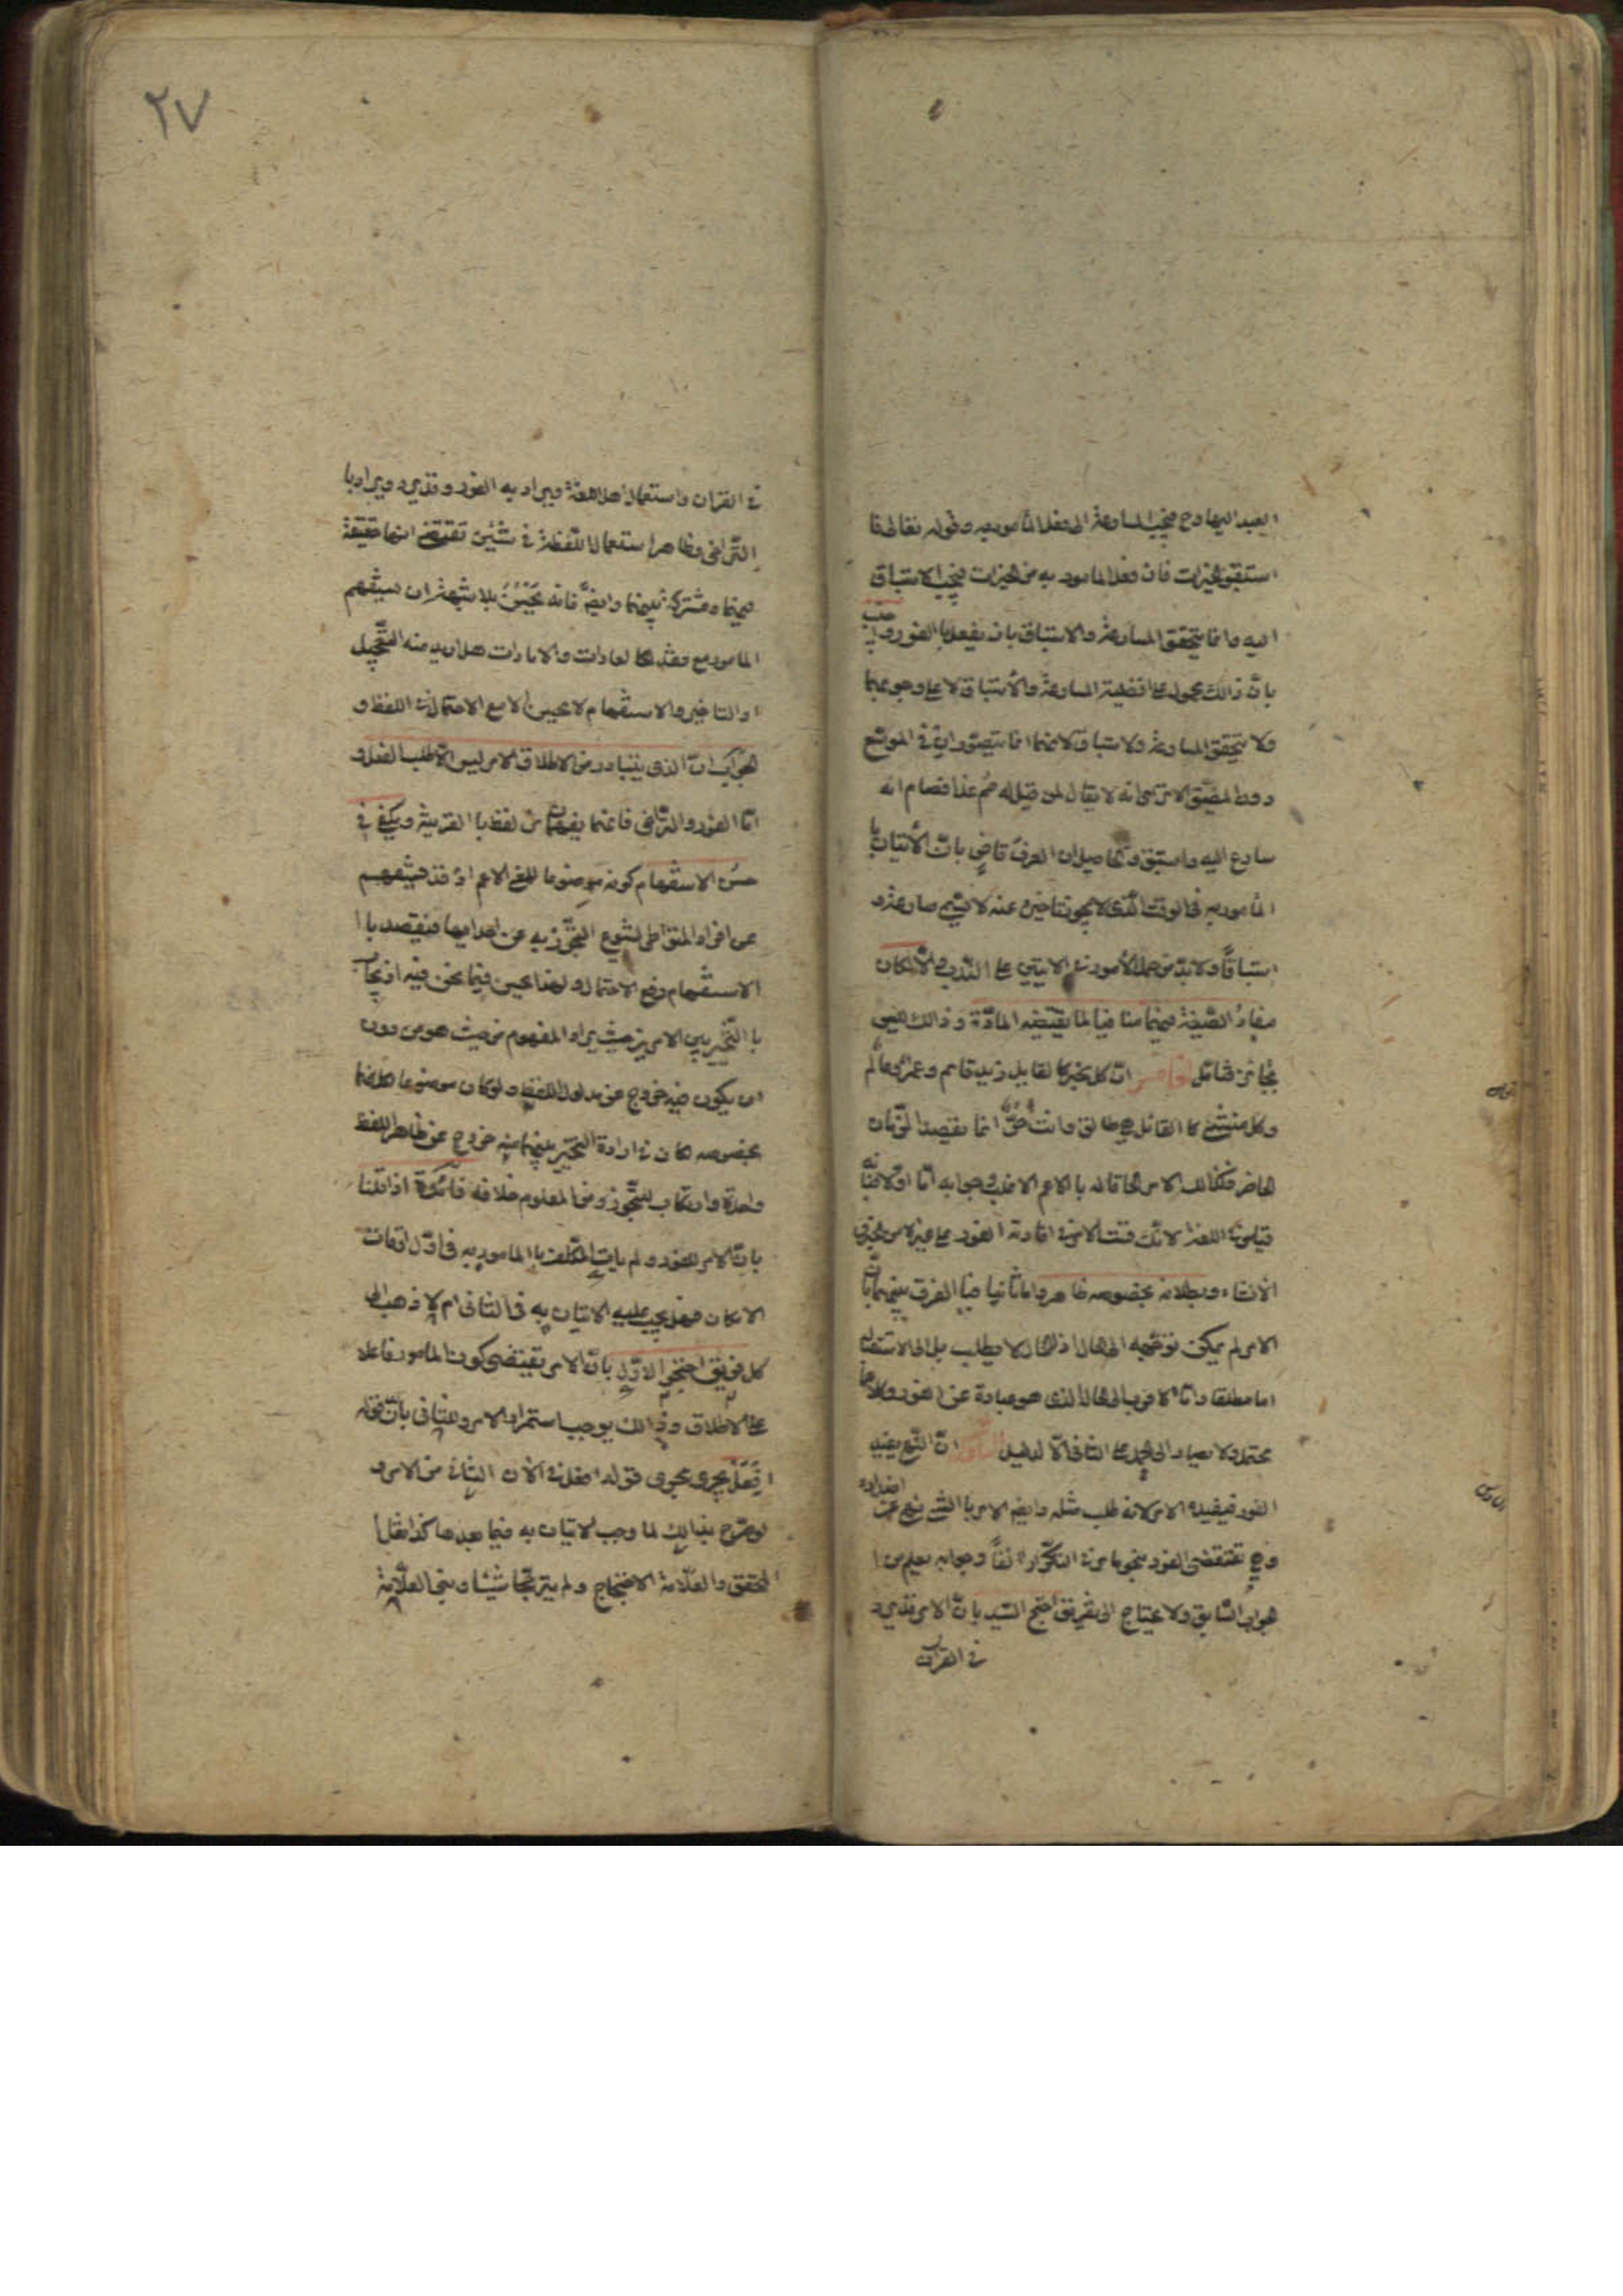 العبد اليها وح فيجب المسارعة الى فعل المأمور به وقوله تعالى فا
استبقوا الخيرات فان فعل المامور به من الخيرات فيجب الاستباق
اليه وانما يتحقق المسارعة والاستباق بان يفعل بالفور واجيب
بان ذالك محمول على افضلية المسارعة والأستباق لا على وجوبهما
ولا يتحقق المسارعة ولاستباق لانهما انما يتصوران في الموسّع
دون المضيّق الا ترى انه لا يقال لمن قيل له صُم غدا فصام انه
سارع اليه واستبق والحاصل ان العرف قاضٍ بانّ الأتيان با
المامور به في الوقت الذي لا يجوز تاخيره عنه لا يسمى مسارعة و
استباقاً ولا بدّ من حمل الأمور في الايتين على النّدب والّا لكان
مفادُ الصّيغة فيهما منافيا لما يقتضيه المادّة وذالك ليس
بجائز فتأمّل الخامس انّ كل مخبر كا لقايل زيد قائم وعمرو عالم
وكل منشئ كا القائل هي طالق وانت حرّ انما يقصد الزّمان
الحاضر فكذالك الامر الحاقا له با الاعم الاغلب وجوابه امّا اوّلا فبانه
قياس في اللغة لانّك قست الامر في افادته الفور على غيره من الخبر و
الانشاء وبطلانه بخصوصه ظاهر واما ثانيا فبا الفرق بينهما بانّ
الامر لم يمكن توجّهه الى الحال اذ الحال لا يطلب بل الى الاستقبال
اما مطلقا وامّا الاقرب الى الحال الذي هو عبارة عن الفور وكلاهما
محتمل ولا يصار الى الحمل على الثاني الّا لدليل السادس انّ النهى يفيد
الفور فيفيده الامر لانه طلب مثله وايضا الامر با الشئ نهى عن اضداده
وهو تقتضي الفور بنحو ما مرّ في التكرار انفاً وجوابه يعلم من ا
لجواب السّابق ولا يحتاج الى تقريره احتج السّيد بانّ الامر قد يرد
في القرآن
٢٧
في القران واستعمال اهل اللغة ويراد به الفور وقد يرد ويراد با
التّراخي وظاهر استعمال اللّفظة في شيئين تقتضي انها حقيقة
فيهما ومشتركة بينهما وايضاً فانه يَحْسُنُ بلا شبهة ان يستفهم
المامور مع فقد العادات والامارات هل اريد منه التّعجيل
او التاخير والاستفهام لا يحسن الّا مع الاحتمال في اللفظ و
الجواب انّ الذي يتبادر من الاطلاق الامر ليس الّا طلب الفعل و
امّا الفور والتّراخي فانّهما يفهمان من لفظ با القرينة ويكفي في
حسن الاستفهام كونه موضوعا للمعنى الاعم اذ قد يستفهم
عن افراد المتواطى لشيوع التّجوّز به عن احدها فيقصد با ا
الاستفهام رفع الاحتمال ولهذا يحسن فيما نحن فيه ان يجاب
با التّخيير بين الامرين حيث يراد المفهوم من حيث هو من دون
ان يكون فيه خروج عن مدلول اللفظ ولو كان موضوعا لكل منهما
بخصوصه لكان في ارادة التخيير بينهما منه خروج عن ظاهر اللفظ
وارتكاب للتّجوز ومن المعلوم خلافه فائدة اذا قلنا
بانّ الامر للفور ولم يات المكلف با المامور به في اوّل اوقات
الامكان فهل يجب عليه الاتيان به في الثاني ام لا ذهب الى
كل فريق احتج الاوّل بانّ الامر يقتضى كون المامور فاعلا
على الاطلاق وذالك يوجب استمرار الامر وللثاني بانّ قوله
افعَل يجرى مجرى قوله افعل في الآن الثاني من الامر و
لو صرح بذالك لما وجب الاتيان به فيما بعد هكذا نقل ا
لمحقق والعلّامة الاحتجاج ولم يرجّحا شيئا وبنى العلّامة